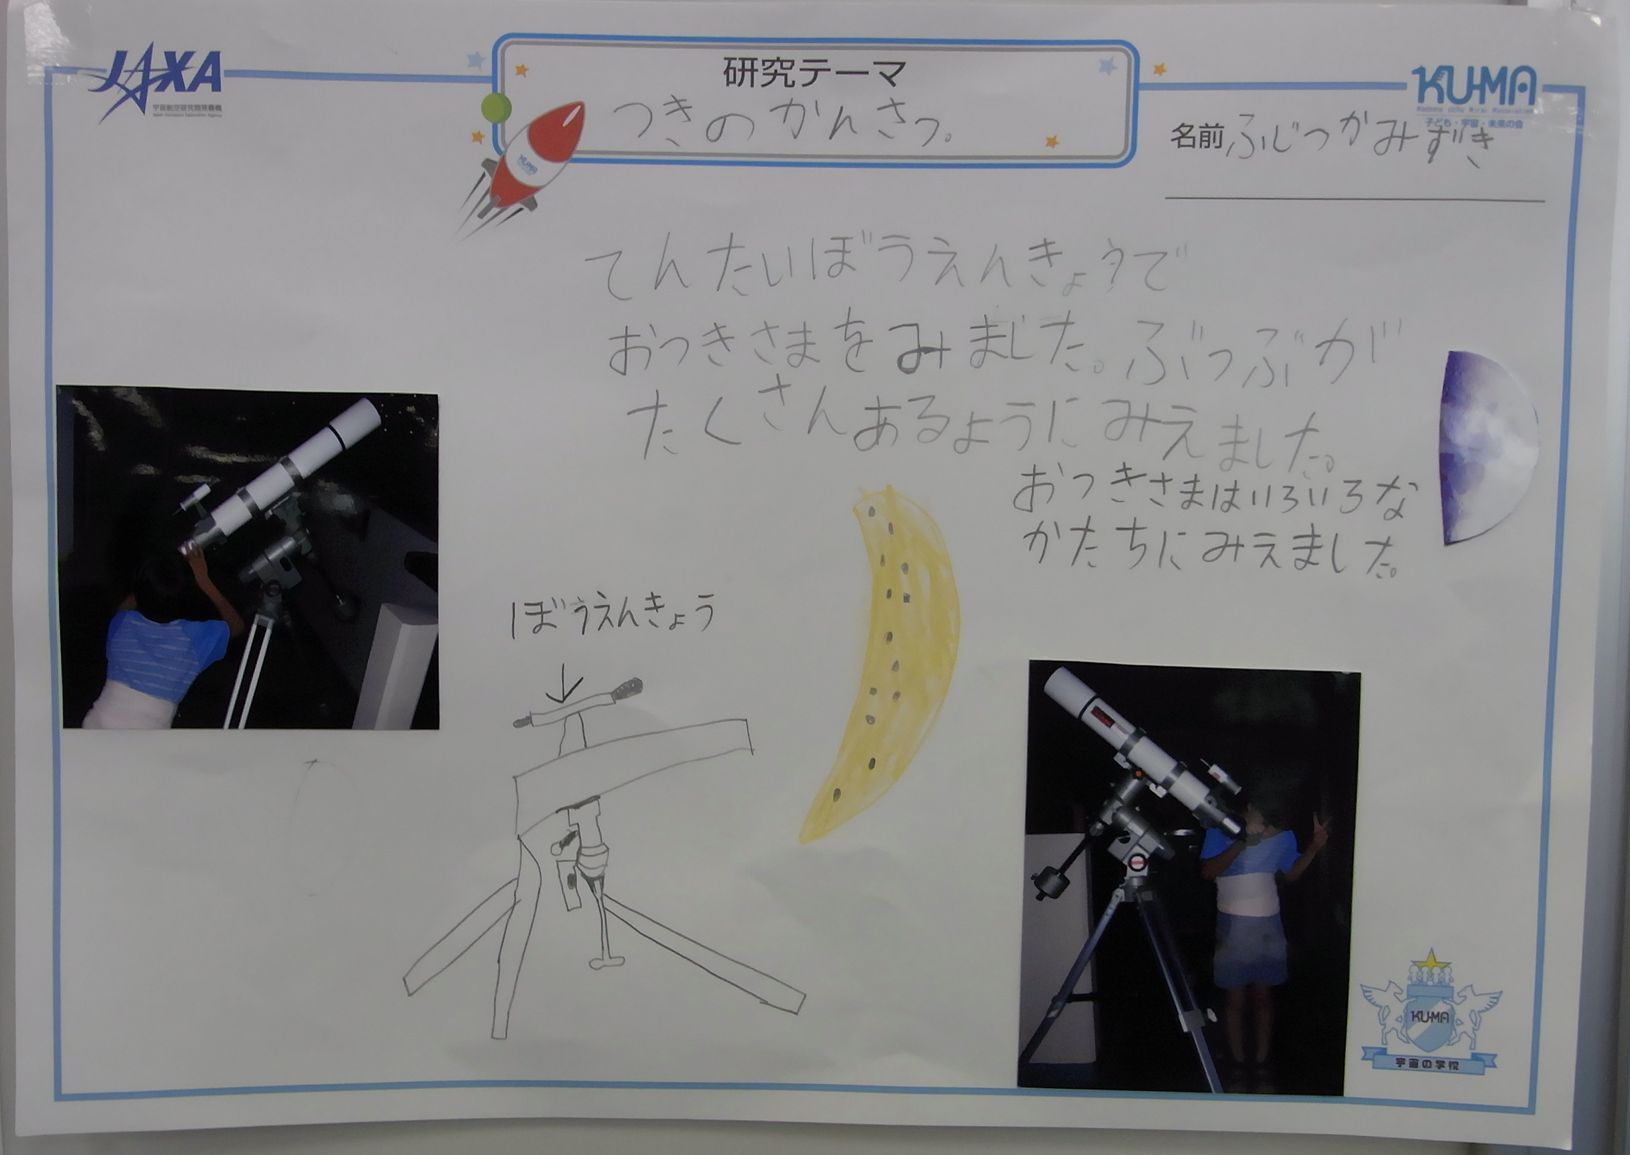 JAXA
宇宙航空研究開発機構
Japan Aerospace Exploration Agency
研究テーマ
つきのかんさつ。
KU-MA
子ども・宇宙・未来の会
名前 ふじつかみずき
KU-MA
てんたいぼうえんきょうで
おつきさまをみました。ぶつぶが
たくさんあるようにみえました。
おつきさまはいろいろな
かたちにみえました。
ぼうえんきょう
KU-MA
宇宙の学校